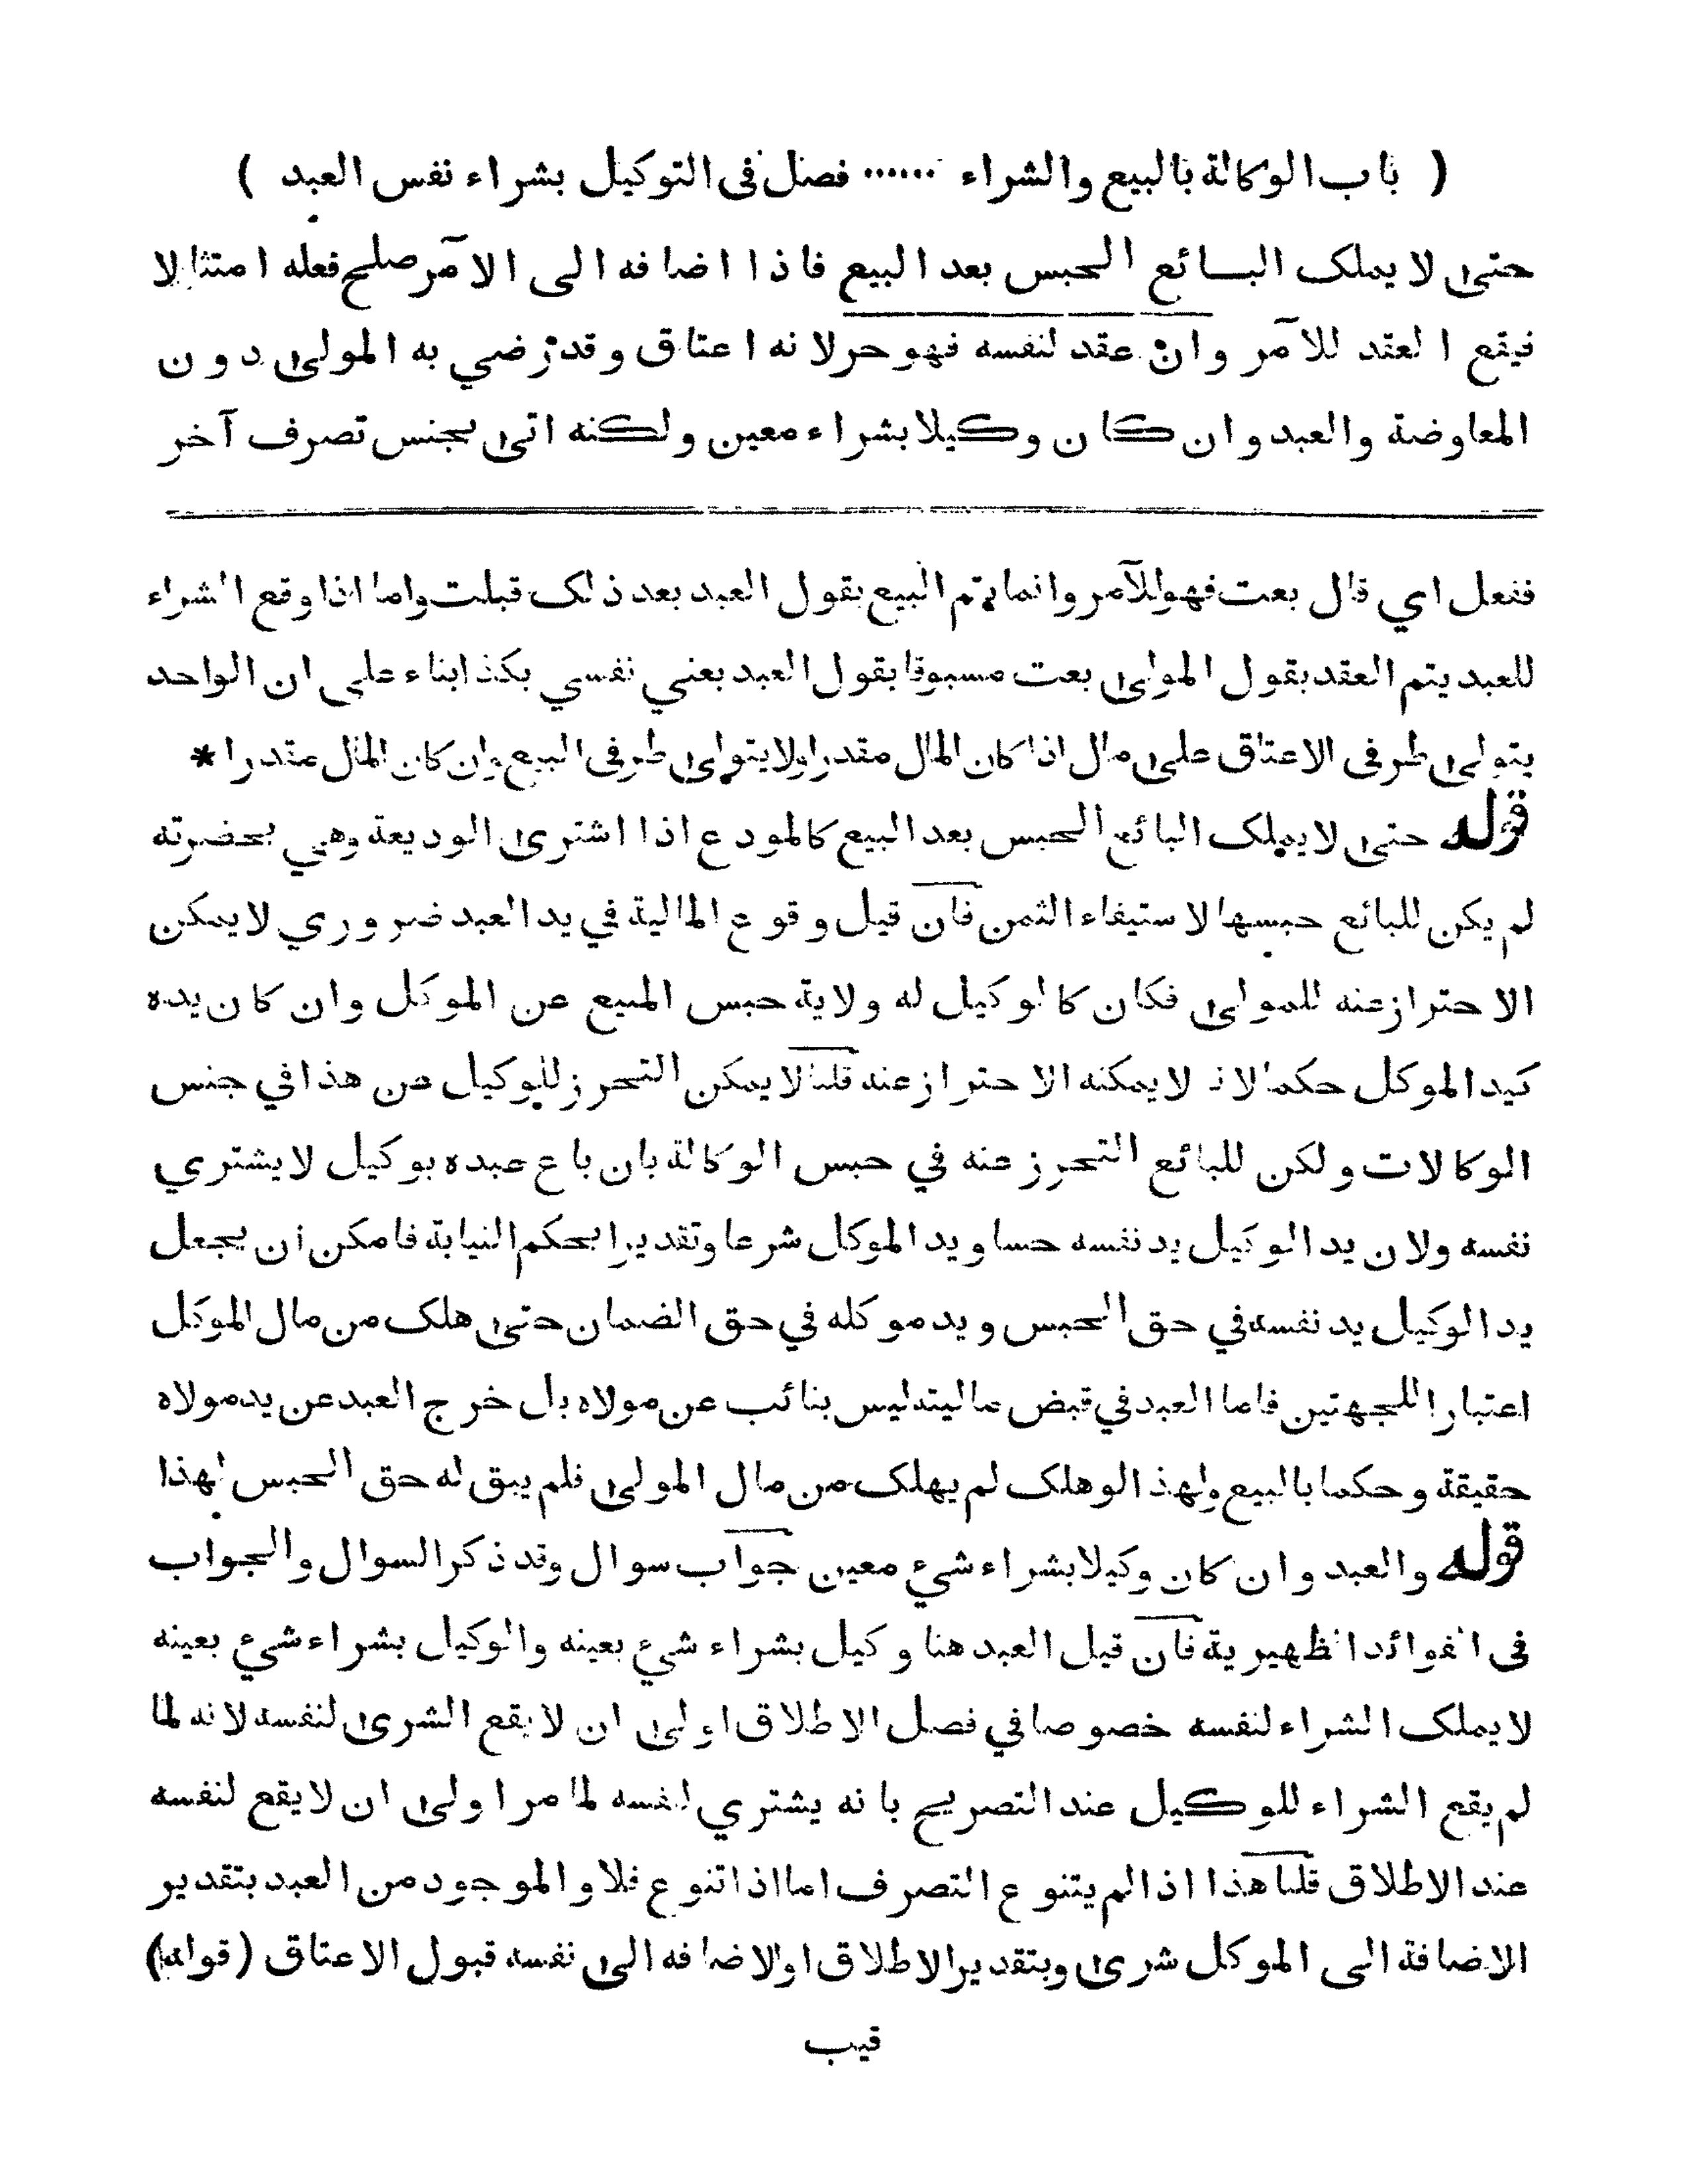 ( باب الوكالة بالبيع والشراء ...... فصل فى التوكيل بشراء نفس العبد )
حتى لا يملك البائع الحبس بعد البيع فاذا اضافه الى الآمر صلح فعله امتثالا
فيقع العقد للآمر وان عقد لنفسه فهو حر لانه اعتاق وقد رضي به المولى دون
المعاوضة والعبد وان كان وكيلا بشراء معين ولكنه اتى بجنس تصرف آخر
ففعل اي قال بعت فهو للآمر وانما يتم البيع بقول العبد بعد ذلك قبلت واما اذا وقع الشراء
للعبد يتم العقد بقول المولى بعت مسبوقا بقول العبد بعني نفسي بكذا بناء على ان الواحد
يتولى طرفى الاعتاق على مال اذا كان المال مقدرا ولا يتولى طرفى البيع وان كان المال مقدرا *
قوله حتى لا يملك البائع الحبس بعد البيع كالمودع اذا اشترى الوديعة وهي بحضرته
لم يكن للبائع حبسها لاستيفاء الثمن فان قيل وقوع المالية في يد العبد ضروري لا يمكن
الاحتراز عنه للمولى فكان كالوكيل له ولاية حبس المبيع عن الموكل وان كان يده
كيد الموكل حكما لانه لا يمكنه الاحتراز عنه قلنا لا يمكن التحرز للوكيل عن هذا في جنس
الوكالات ولكن للبائع التحرز عنه في حبس الوكالة بان باع عبده بوكيل لا يشتري
نفسه ولان يد الوكيل يد نفسه حسا ويد الموكل شرعا وتقديرا بحكم النيابة فامكن ان يجعل
يد الوكيل يد نفسه في حق الحبس ويد موكله في حق الضمان حتى هلك من مال الموكل
اعتبارا للجهتين فاما العبد في قبض ماليته ليس بنائب عن مولاه بل خرج العبد عن يد مولاه
حقيقة وحكما بالبيع ولهذا لو هلك لم يهلك من مال المولى فلم يبق له حق الحبس لهذا
قوله والعبد وان كان وكيلا بشراء شيء معين جواب سوال وقد ذكر السوال والجواب
فى الفوائد الظهيرية فان قيل العبد هنا وكيل بشراء شيء بعينه والوكيل بشراء شيء بعينه
لا يملك الشراء لنفسه خصوصا في فصل الاطلاق اولى ان لا يقع الشرى لنفسه لانه لما
لم يقع الشراء للوكيل عند التصريح بانه يشتري لنفسه لما مر اولى ان لا يقع لنفسه
عند الاطلاق قلنا هذا اذا لم يتنوع التصرف اما اذا تنوع فلا والموجود من العبد بتقدير
الاضافة الى الموكل شرى وبتقدير الاطلاق او الاضافه الى نفسه قبول الاعتاق (قوله)
قيب